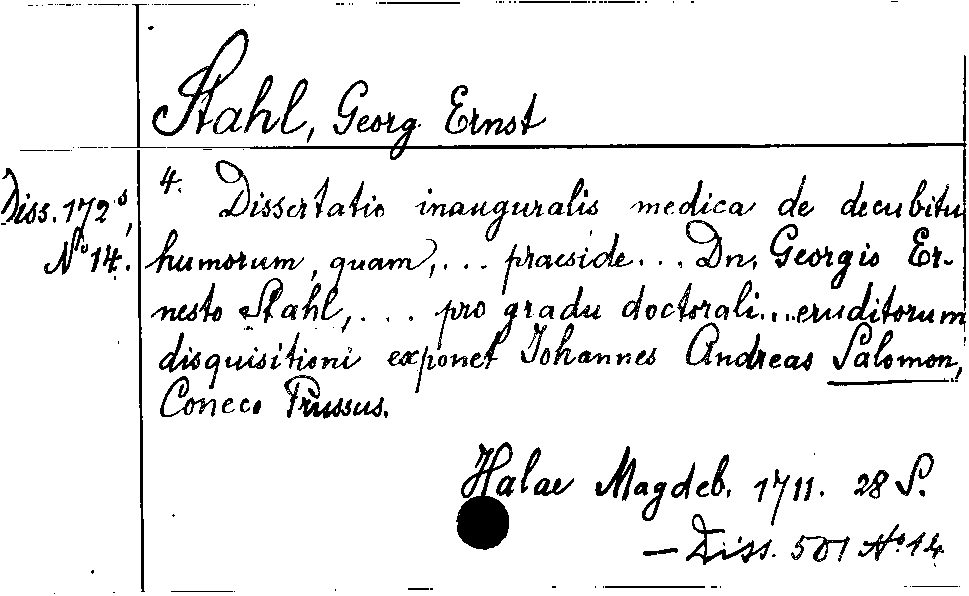 Stahl, Georg Ernst
Diss. 172 s,
No 14.
4. Dissertatio inauguralis medica de decubitu
humorum, quam,... praeside... Dn. Georgio Er-
nesto Stahl,... pro gradu doctorali...eruditorum
disquisitioni exponet Johannes Andreas Salomon,
Coneco Prussus.
Halae Magdeb. 1711. 28 S.
— Diss. 501 No. 14